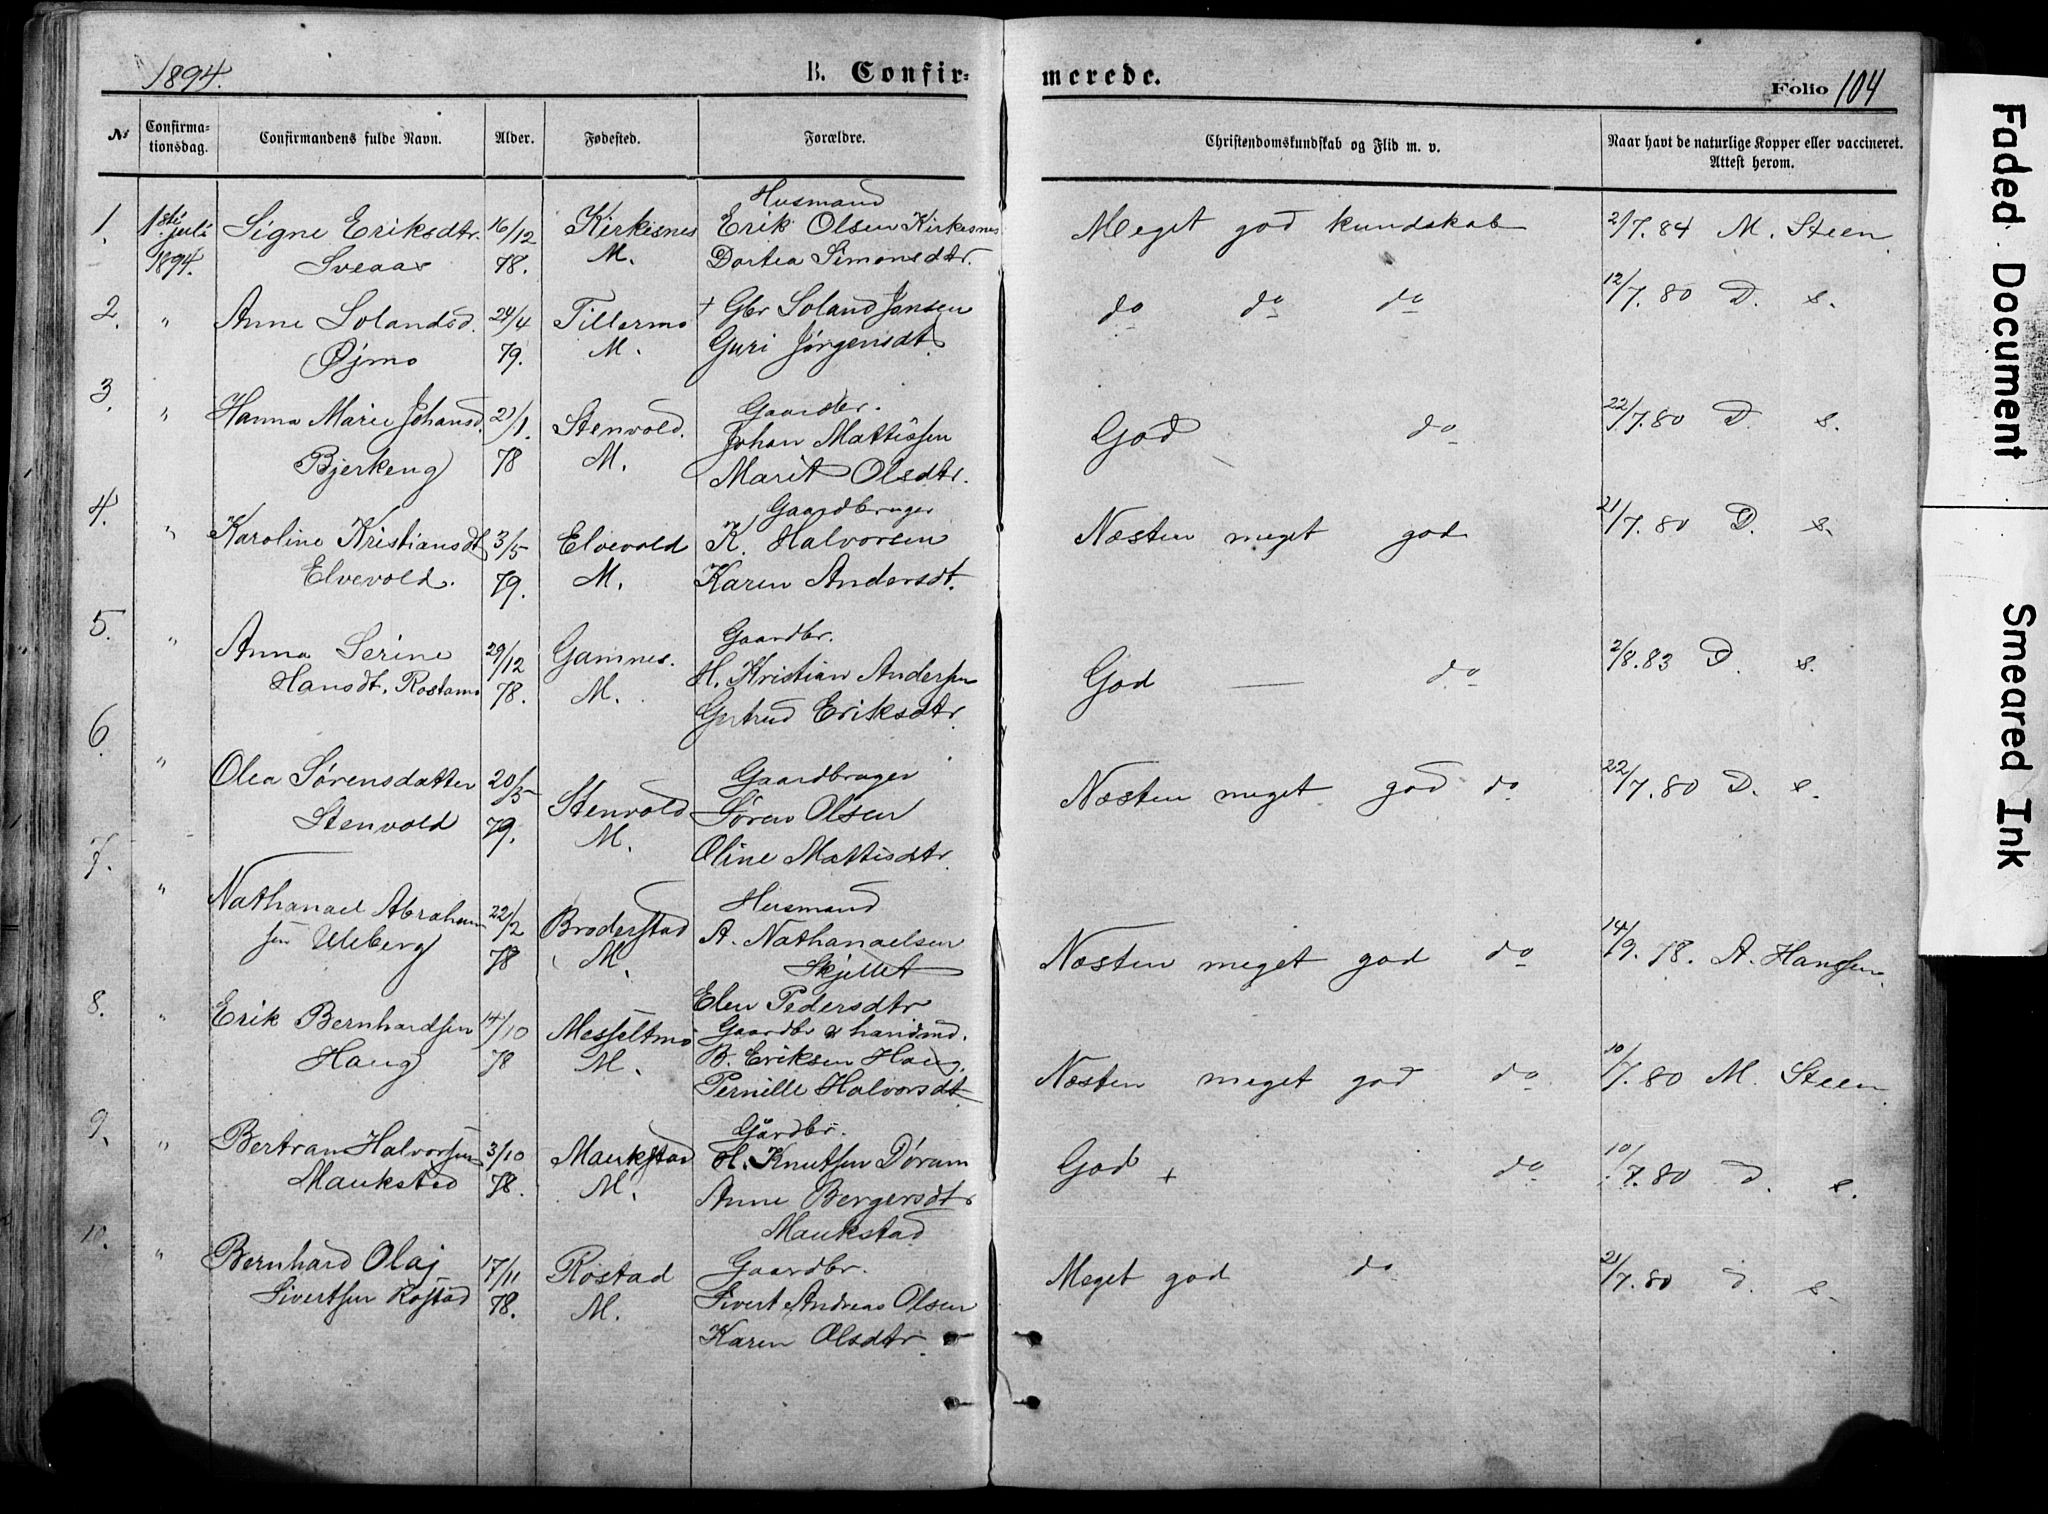 1894.
B. Confir-
merede.
Folio 104
No
Confirma-
tionsdag.
Confirmandens fulde Navn.
Alder.
Fødested.
Forældre.
Christendomskundskab og Flid m. v.
Naar havt de naturlige Kopper eller vaccineret.
Attest herom.
1.
1ste juli
1894.
Signe Eriksdtr.
Sveaas
16/12
78.
Kirkesnes
M.
Husmand
Erik Olsen Kirkesnes
Dortea Simonsdtr.
Meget god kundskab
21/7.84 M. Steen
2.
"
Anne Solandsd.
Øjmo
24/4
79.
Tillermo
M.
+ Gbr Soland Jensen
Guri Jørgensdt
do do do
12/7.80 D. s.
3.
"
Hanna Marie Johansd.
Bjerkeng
21/1.
78
Stenvold.
M.
Gaardbr.
Johan Mattissen
Marit Olsdtr.
God do
22/7.80 D. s.
4.
"
Karoline Kristiansdt
Elvevold.
3/5
79.
Elvevold
M.
Gaardbruger
K. Halvorsen
Karen Andersdt.
Næsten meget god
21/7.80 D. s.
5.
"
Anna Serine
Hansdt. Rostamo
29/12
78.
Gamnes.
M.
Gaardbr.
H. Kristian Andersen
Gertrud Eriksdtr.
God — do
2/8.83 D. s.
6.
"
Olea Sørensdatter
Stenvold
20/5
79.
Stenvold
M.
Gaardbruger
Søren Olsen
Oline Mattisdtr
Næsten meget god do
22/7.80 D. s.
7.
"
Nathanael Abraham
sen Uleberg
22/2
78
Broderstad
M.
Husmand
A. Nathanaelsen
Skjellet
Elen Pedersdtr
Næsten meget god do
14/9.78. A. Hansen
8.
"
Erik Bernhardsen
Haug
14/10
78
Messeltmo
M.
Gaardbr & handmd.
B. Eriksen Haug.
Pernille Halvorsdt.
Næsten meget god do
10/7.80 M. Steen
9.
"
Bertran Halvorsen
Maukstad
3/10
78.
Maukstad
M.
Gårdbr.
H. Knutsen Døram
Anne Bergersdtr
Maukstad
God + do
10/7.80 D. s.
10.
"
Bernhard Olaj
Sivertsen Rostad
17/11
78.
Rostad
M.
Gaardbr.
Sivert Andreas Olsen
Karen Olsdtr.
Meget god do
21/7.80 d. s.
Faded Document
Smeared Ink